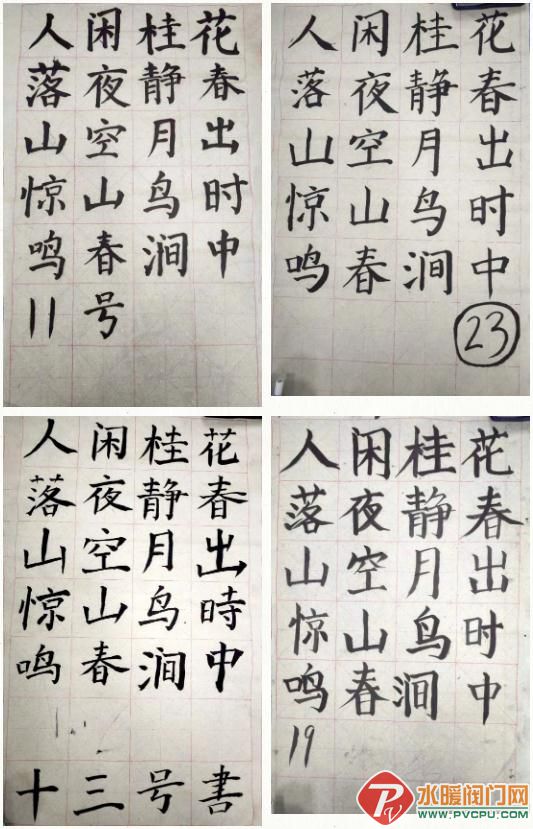 人闲桂花
落夜静春
山空月出
惊山鸟时
鸣春涧中
11号
人闲桂花
落夜静春
山空月出
惊山鸟时
鸣春涧中
23
人闲桂花
落夜静春
山空月出
惊山鸟時
鸣春涧中
十三号書
人闲桂花
落夜静春
山空月出
惊山鸟时
鸣春涧中
19
水暖阀门网
WWW.PVCPU.COM